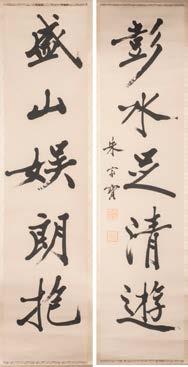 彭水足清遊
朱家寶
盛山娱朗抱